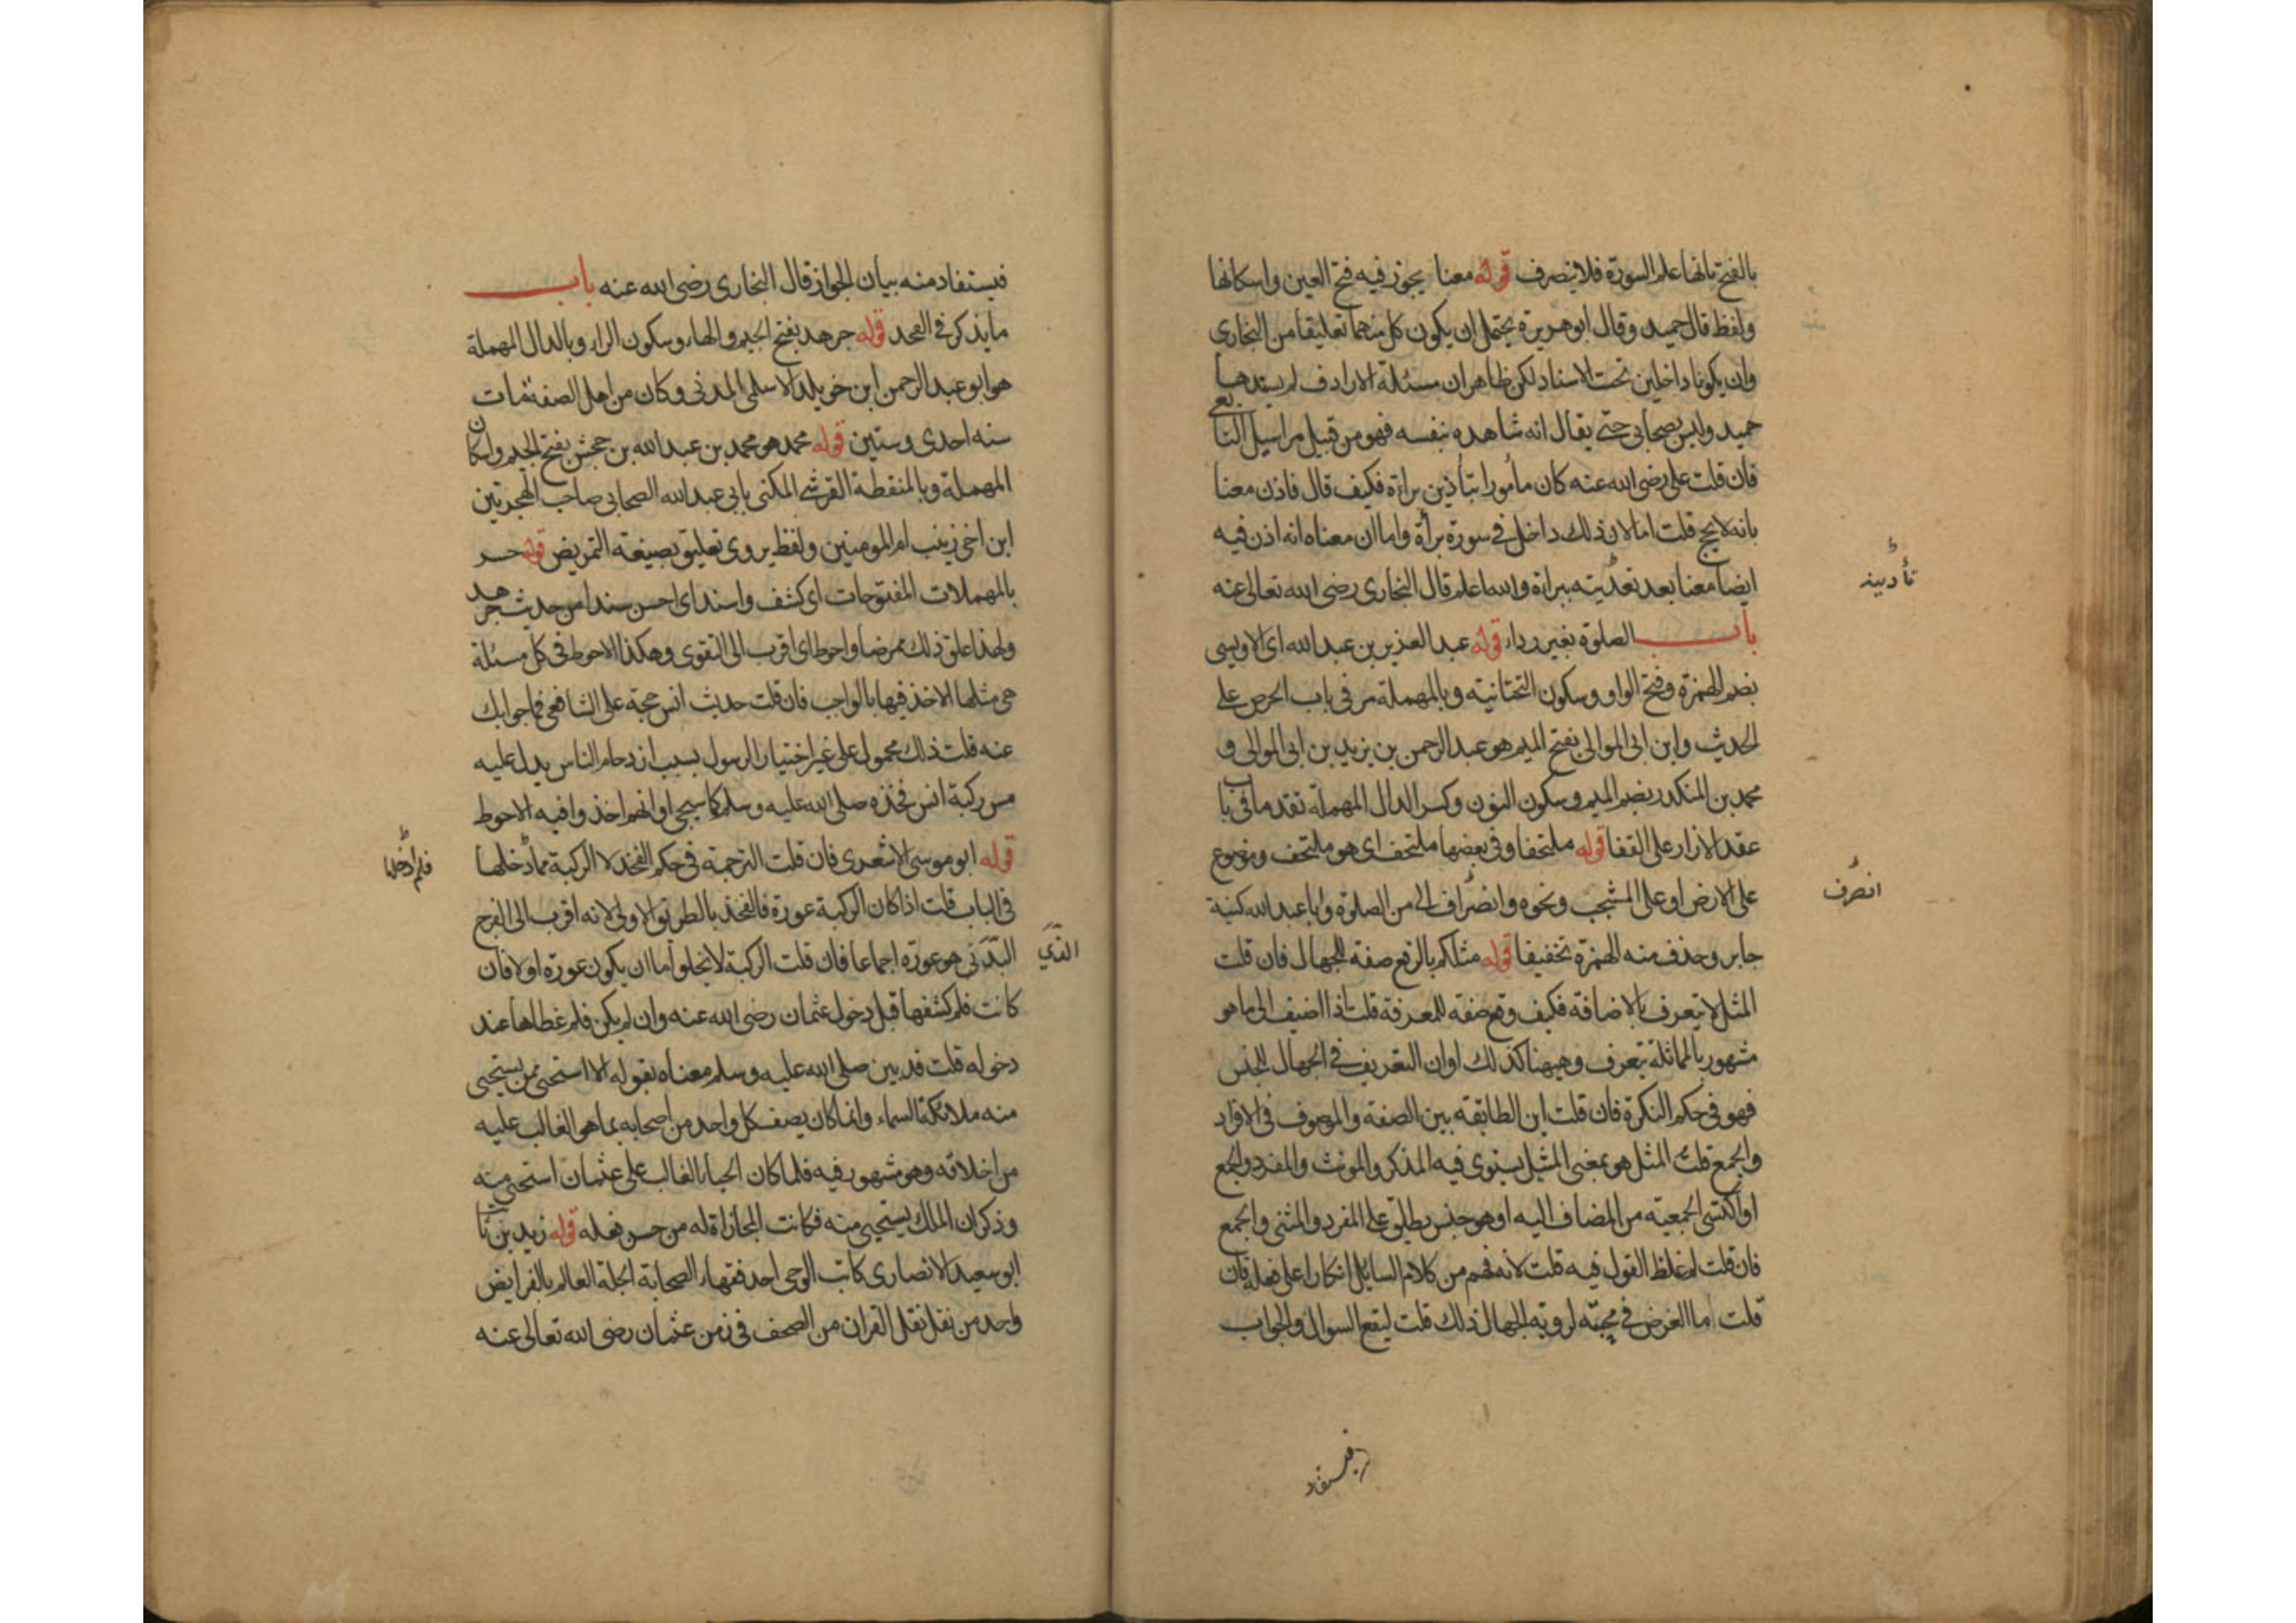 بالفتح بانها علم السورة فلا ينصرف قوله معنا يجوز فيه فتح العين واسكانها
ولفظ قال حميد وقال ابو هريرة يحتمل ان يكون كل منهما تعليقا من البخارى
وان يكونا داخلين تحت الاسناد لكن ظاهر ان مسئلة الارادف لم يسندها
حميد وليس بصحابى حتى يقال انه شاهده بنفسه فهو من قبيل مراسيل التابعى
فان قلت على رضى الله عنه كان مأمورا بتأذين براءة فكيف قال فاذن معنا
بانه لا يحج قلت اما لان ذلك داخل فى سورة برأة واما ان معناه انه اذن فيه
ايضا معنا بعد تعديته ببراءة والله اعلم قال البخارى رضى الله تعالى عنه
تأدينه
باب الصلوة بغير رداء قوله عبد العزيز بن عبد الله اى الاويسى
بضم الهمزة وفتح الواو وسكون التحتانية وبالمهملة مر فى باب الحرص على
الحديث وابن ابى الموالى بفتح الميم هو عبد الرحمن بن زيد بن ابى الموالى و
محمد بن المنكدر بضم الميم وسكون النون وكسر الدال المهملة تقدما فى باب
عقد الازار على القفا قوله ملتحفا وفى بعضها ملتحف اى هو ملتحف وموضوع
على الارض او على المشجب ونحوه وانصراف الى من الصلوة وابا عبد الله كنية
انصرف
جابر وحذف منه الهمزة تخفيفا قوله مثلكم بالرفع صفة للجهال فان قلت
المثل لا يتعرف بالاضافة فكيف وقع صفة للمعرفة قلت اذا اضيف الى ما هو
مشهور بالمماثلة يتعرف وههنا كذلك او ان التعريف فى الجهال للجنس
فهو فى حكم النكرة فان قلت اين الطابقة بين الصفة والموصوف فى الافراد
والجمع قلت المثل هو بمعنى المثيل يستوى فيه المذكر والمونث والمفرد والجمع
او اكتسى الجمعية من المضاف اليه او هو جنس يطلق على المفرد والمثنى والجمع
فان قلت لم غلظ القول فيه قلت لانه فهم من كلام السايل انكارا على فعله فان
قلت اما الغرض فى محبته لروية الجهال ذلك قلت ليقع السوال والجواب
فيستفاد
فيستفاد منه بيان الجواز قال البخارى رضى الله عنه باب
ما يذكر فى الفخد قوله جرهد بفتح الجيم والهاء وسكون الراء وبالدال المهملة
هو ابو عبد الرحمن ابن خويلد الاسلمى المدنى وكان من اهل الصفة مات
سنه احدى وستين قوله محمد هو محمد بن عبد الله بن جحش بفتح الجيم واسكان
المهملة وبالمنقطة القرشى المكنى بابى عبد الله الصحابى صاحب الهجرتين
ابن اخى زينب ام المومنين ولفظ يروى تعليق بصيغة التمريض قوله حسر
بالمهملات المفتوحات اى كشف واسند اى احسن سندا من حديث جرهد
ولهذا علق ذلك ممرضا واحوط اى اقرب الى التقوى وهكذا الاحوط فى كل مسئلة
هى مثلها الاخذ فيها بالواجب فان قلت حديث انس حجة على الشافعى فما جوابك
عنه قلت ذلك محمول على غير اختيار الرسول بسبب ازدحام الناس يدل عليه
مس ركبة انس فخذه صلى الله عليه وسلم كما سيجى او انهم اخذوا فيه الاحوط
قوله ابو موسى الاشعرى فان قلت الترجمة فى حكم الفخد لا الركبة مما دخلها
فلم ادخلها
فى الباب قلت اذا كان الركبة عورة فالفخذ بالطريق الاولى لانه اقرب الى الفرج
البدنى هو عورة اجماعا فان قلت الركبة لا تخلوا اما ان يكون عورة او لا فان
الذي
كانت فلم كشفها قبل دخول عثمان رضى الله عنه وان لم يكن فلم غطاها عند
دخوله قلت قد بين صلى الله عليه وسلم معناه بقوله الا استحى ممن يستحيى
منه ملائكة السماء وانما كان يصف كل واحد من اصحابه بما هو الغالب عليه
من اخلاقه وهو مشهور فيه فلما كان الحيا الغالب على عثمان استحيى منه
وذكر ان الملك يستحيى منه فكانت المجازاة له من حسن فعله قوله زيد بن ثابت
ابو سعيد الانصارى كاتب الوحى احد فقهاء الصحابة الجلة العالم بالفرايض
واحد من نقل نقل القران من الصحف فى زمن عثمان رضى الله تعالى عنه